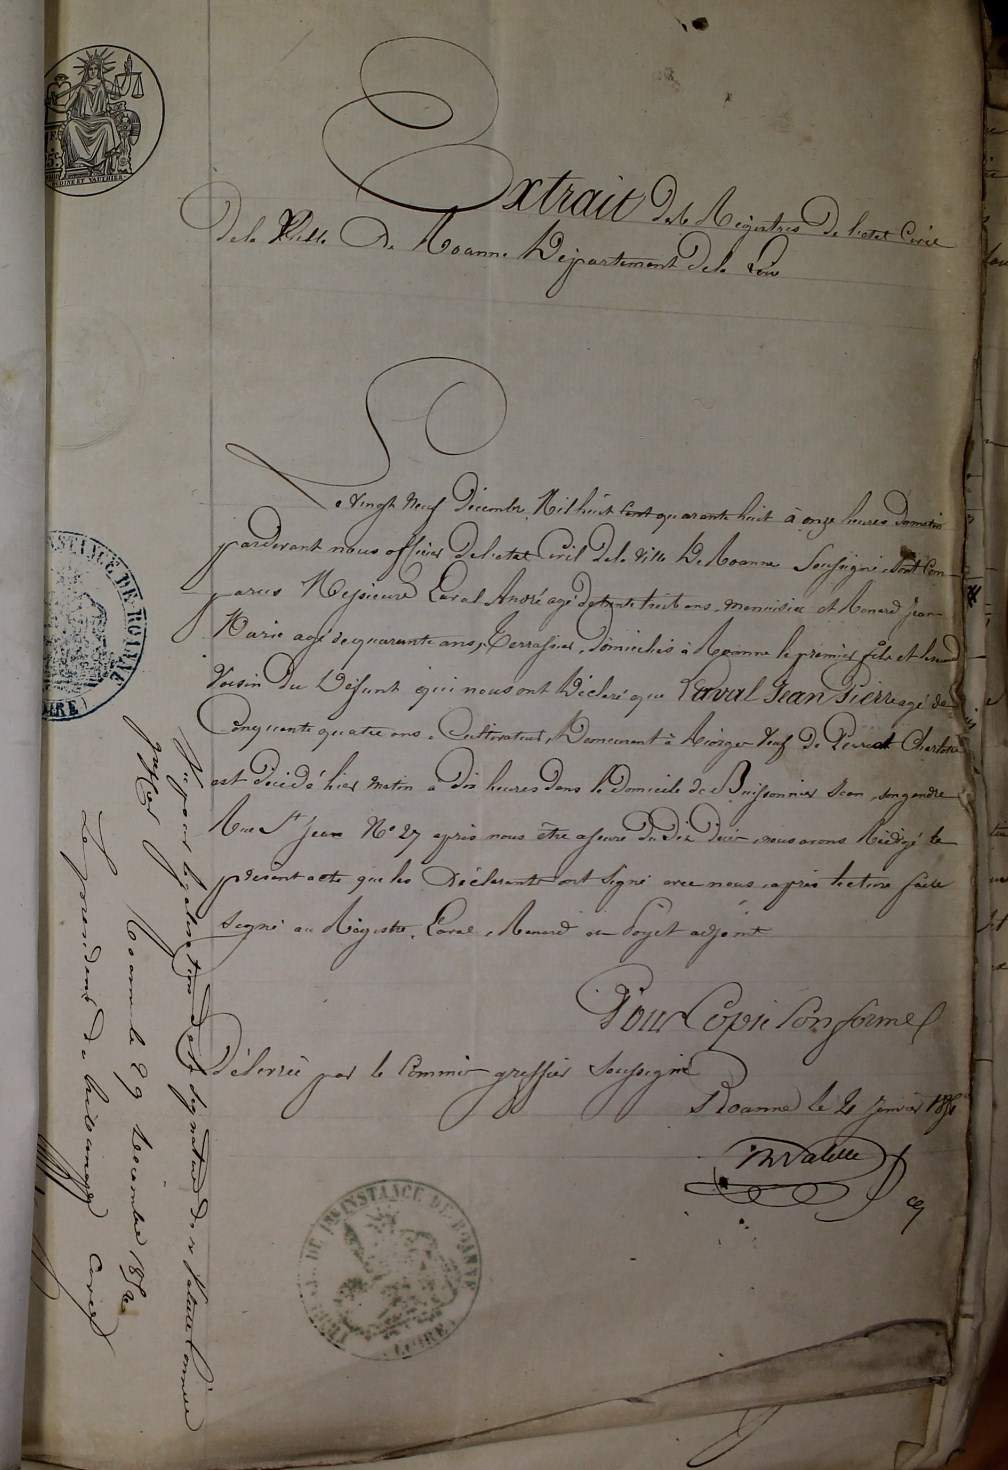 Extrait des Régistres de l'état Civil
de la Ville De Roanne Département de la Loire
Le vingt Neuf Décembre Mil huit cent quarante huit à onze heures Du matin
pardevant nous officier de l'état Civil de la ville De Roanne Soussigné, sont Com-
parus Messieurs Laval André agé de trente huit ans, menuisier et Renard Jean
Marie agé de quarante ans, Terrassier, Domiciliés à Roanne le premier fils et le second
Voisin Du Défunt qui nous ont Déclaré que Laval Jean Pierre agé de
Cinquante quatre ans, Cultivateur, Demeurant à Veuf De Charlotte
est Décédé hier matin a Dix heures dans le Domicile de Buissonnier Jean, son gendre
Rue St Jean No 27 après nous être assuré du dit Décès, nous avons Rédigé le
présent acte que les Déclarants ont Signé avec nous, après lecture faite
Signé au Régistre, Laval, Renard et Poyet adjoint
Pour Copie Conforme
Délivrée par le Commis greffier Soussigné
Roanne le Janvier
Valette
Vu pour légalisation de la signature de Mr Valette Commis
greffier Roanne le 29 Décembre
Le président du tribunal civil
TRIB. DE 1RE INSTANCE DE ROANNE
(LOIRE)
INSTANCE DE ROANNE
(LOIRE)